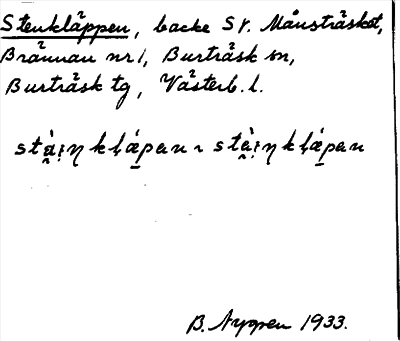 Stenkläppen, backe Sv. Månsträsket,
Brännan nr 1, Burträsk sn,
Burträsk tg, Västerb. l.
B. Nygren 1933.